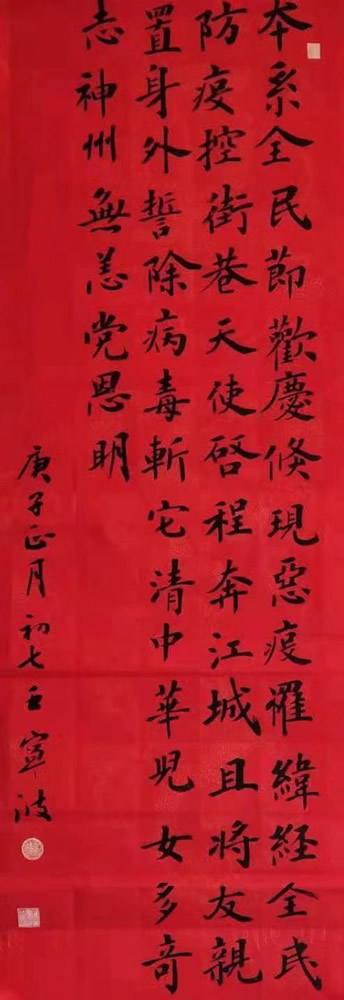 本系全民節歡慶倏現惡疫罹緯経全民
防疫控街巷天使啓程奔江城且将友親
置身外誓除病毒斬它清中華児女多奇
志神州無恙党恩明
庚子正月初七王寧波